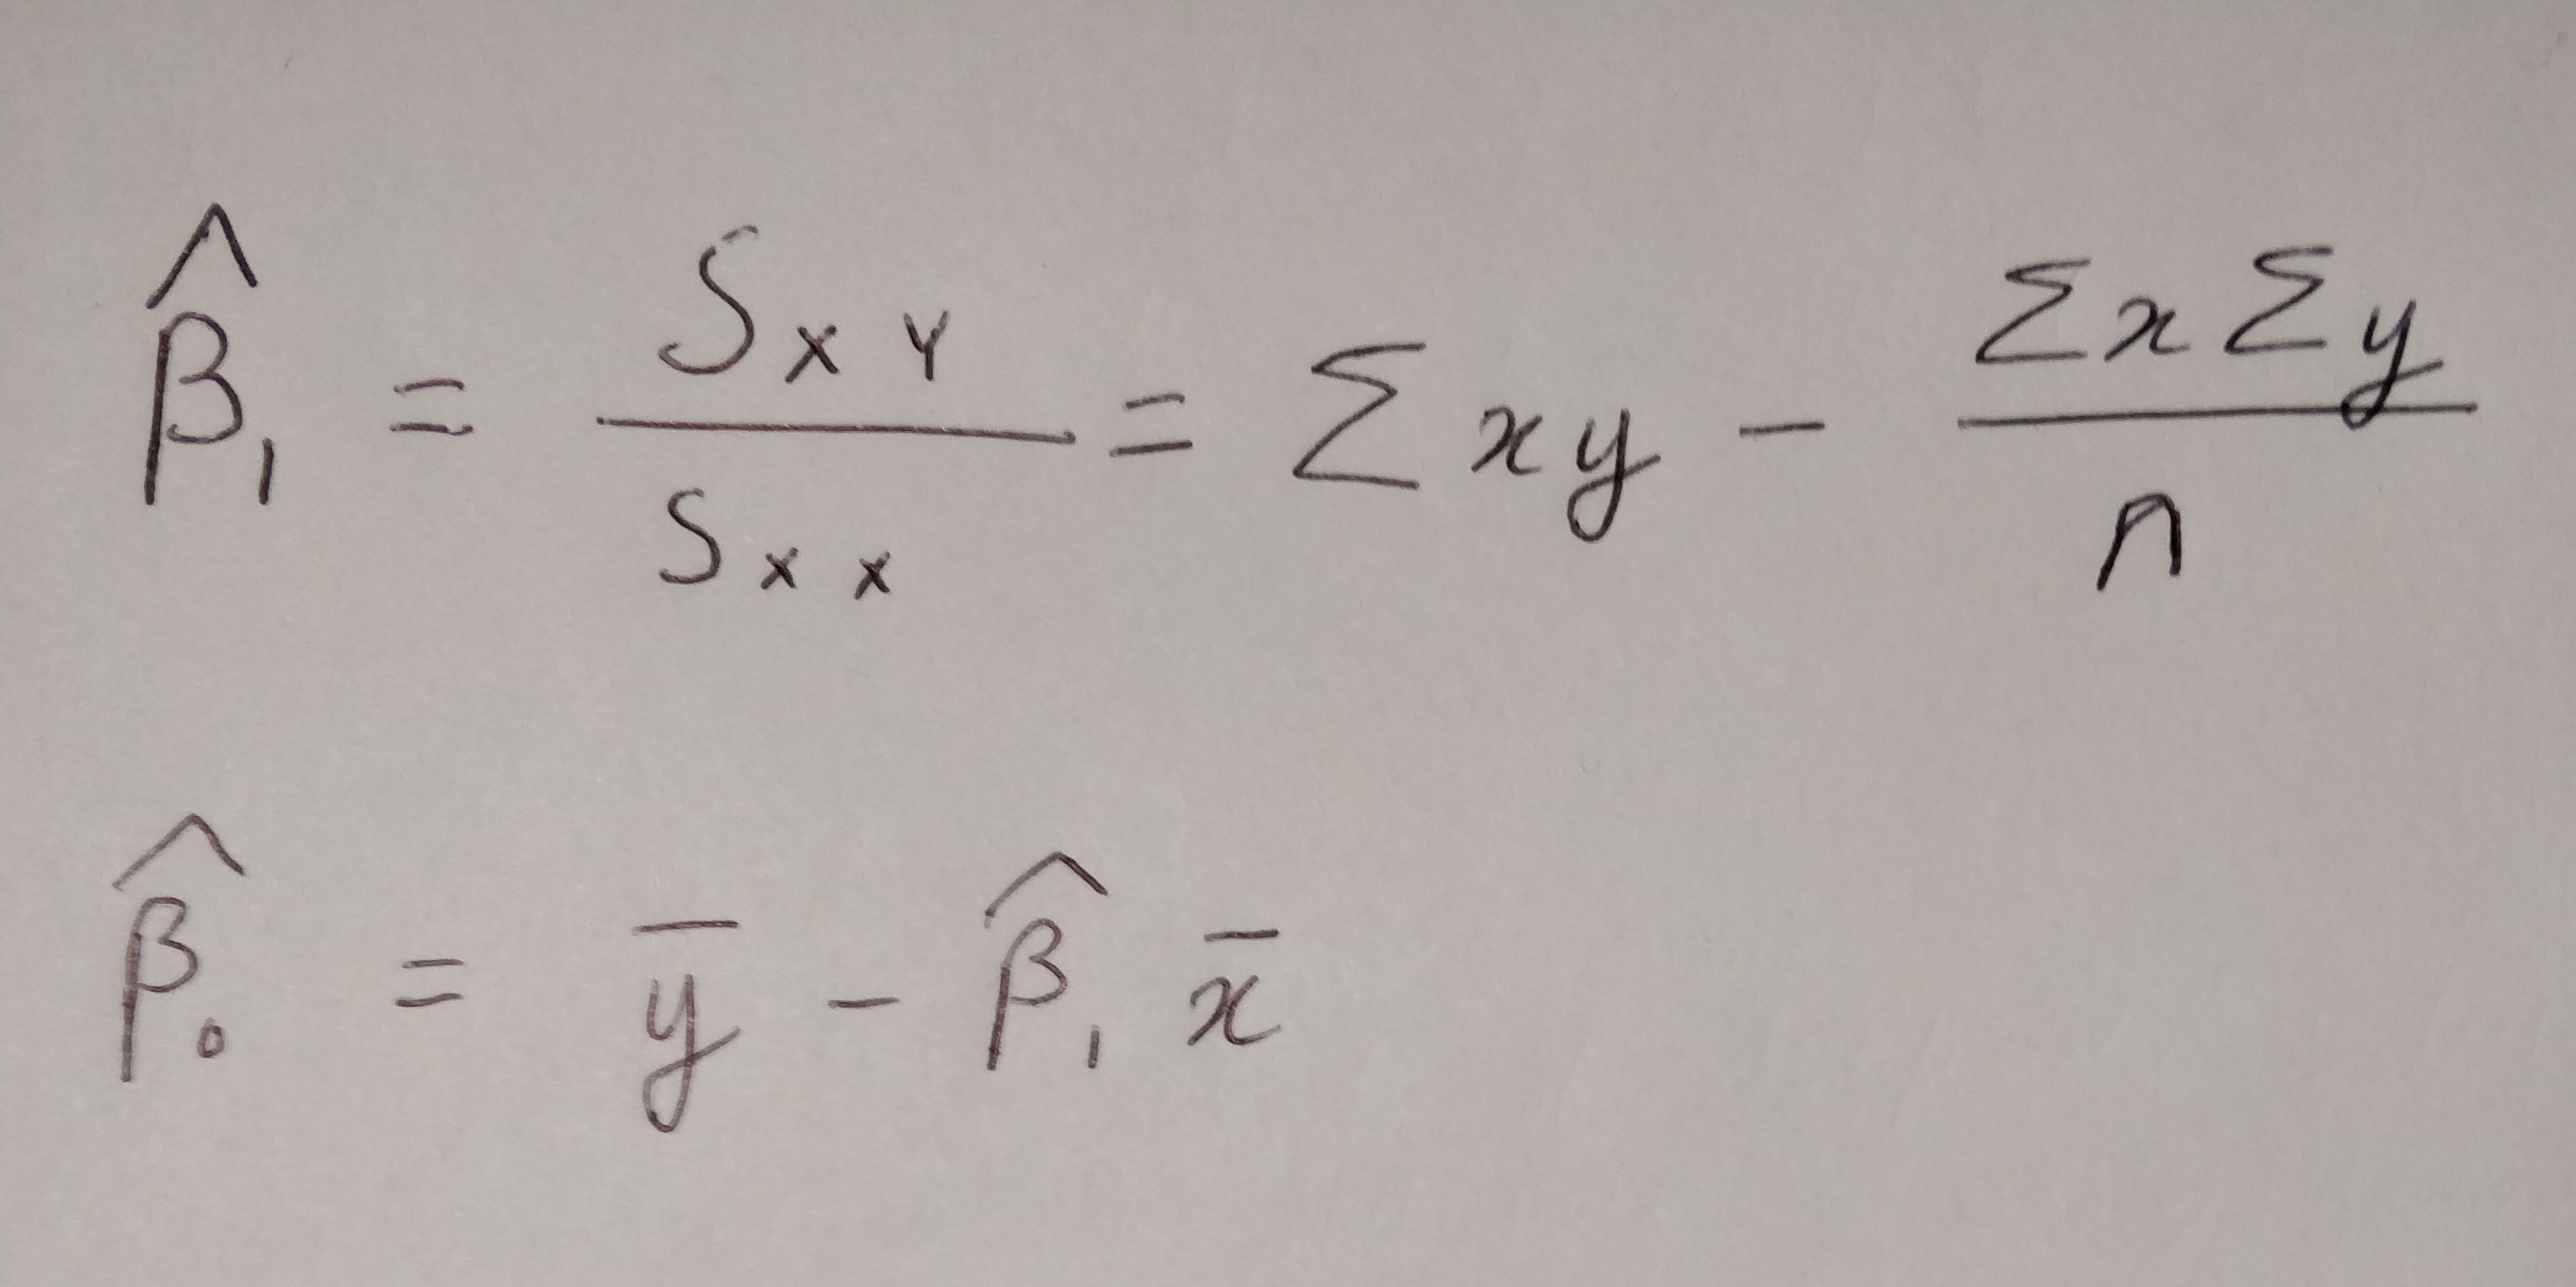 β̂₁ = S_XY / S_XX = Σxy − ΣxΣy / n
β̂₀ = ȳ − β̂₁ x̄